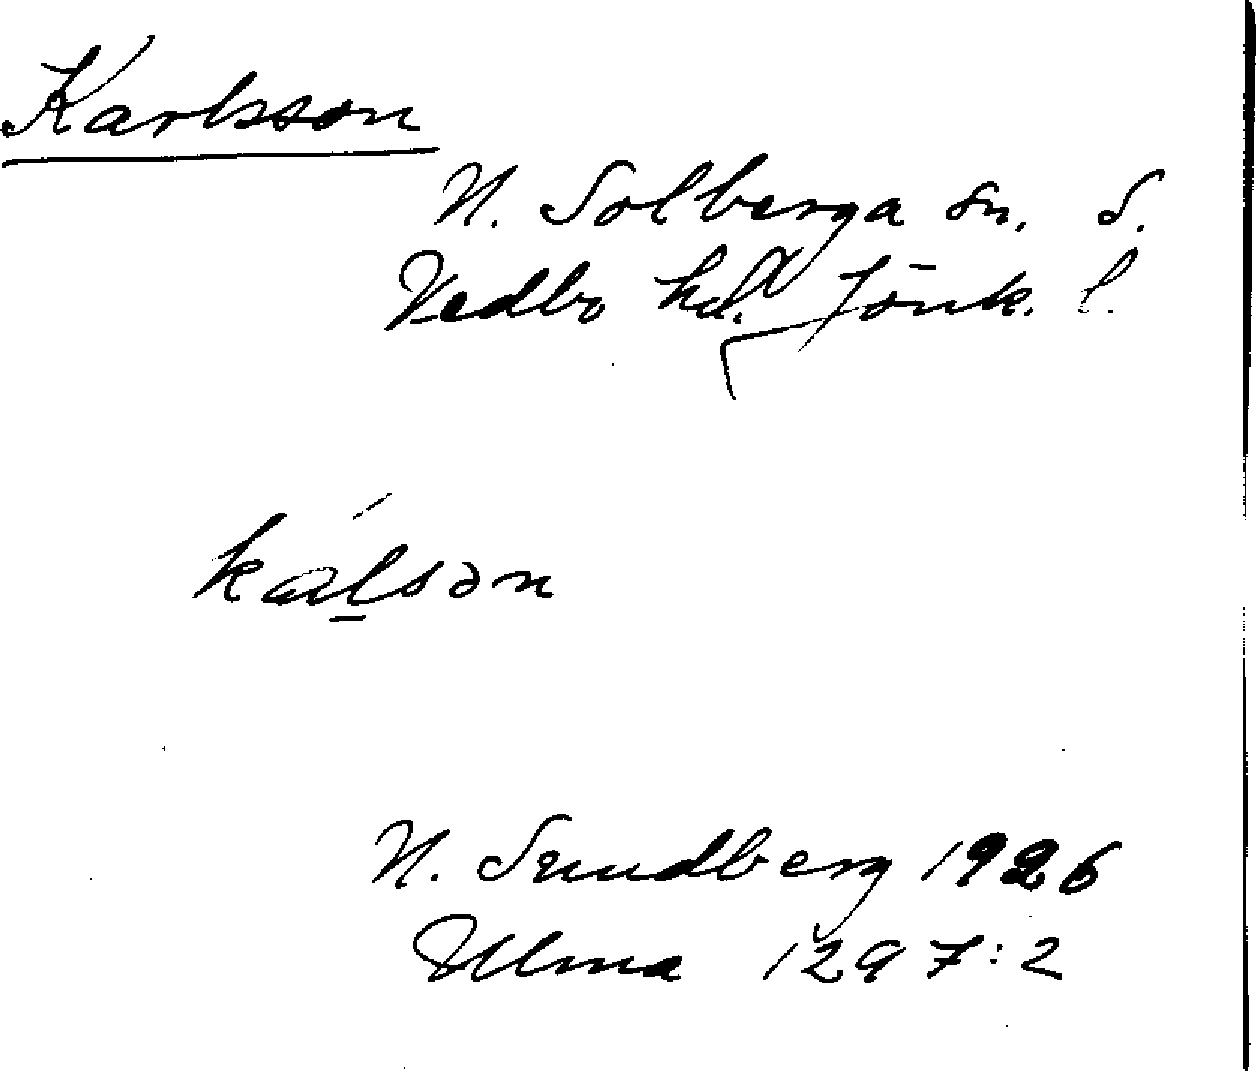 Karlsson
N. Solberga sn. S.
Vedbo hd. Jönk. l.
kálsɔn
N. Sundberg 1926
Ulma 1297:2